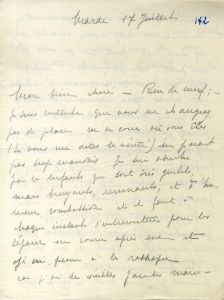 Mardi 17 Juillet 142
Mon bien cheri — Rien de neuf ;
je suis contente que vous ne changiez
pas de place car ce coin où vous êtes
(si vous me dites la vérité) ne paraît
pas trop mauvais. Je suis
par les enfants qui sont très gentils,
mais bruyants, remuants, et d'hu-
meur combattive et il faut à
chaque instant s'interrompre pour les
séparer ou courir après eux et
j'ai peine à les
car j'ai de vieilles jambes main-